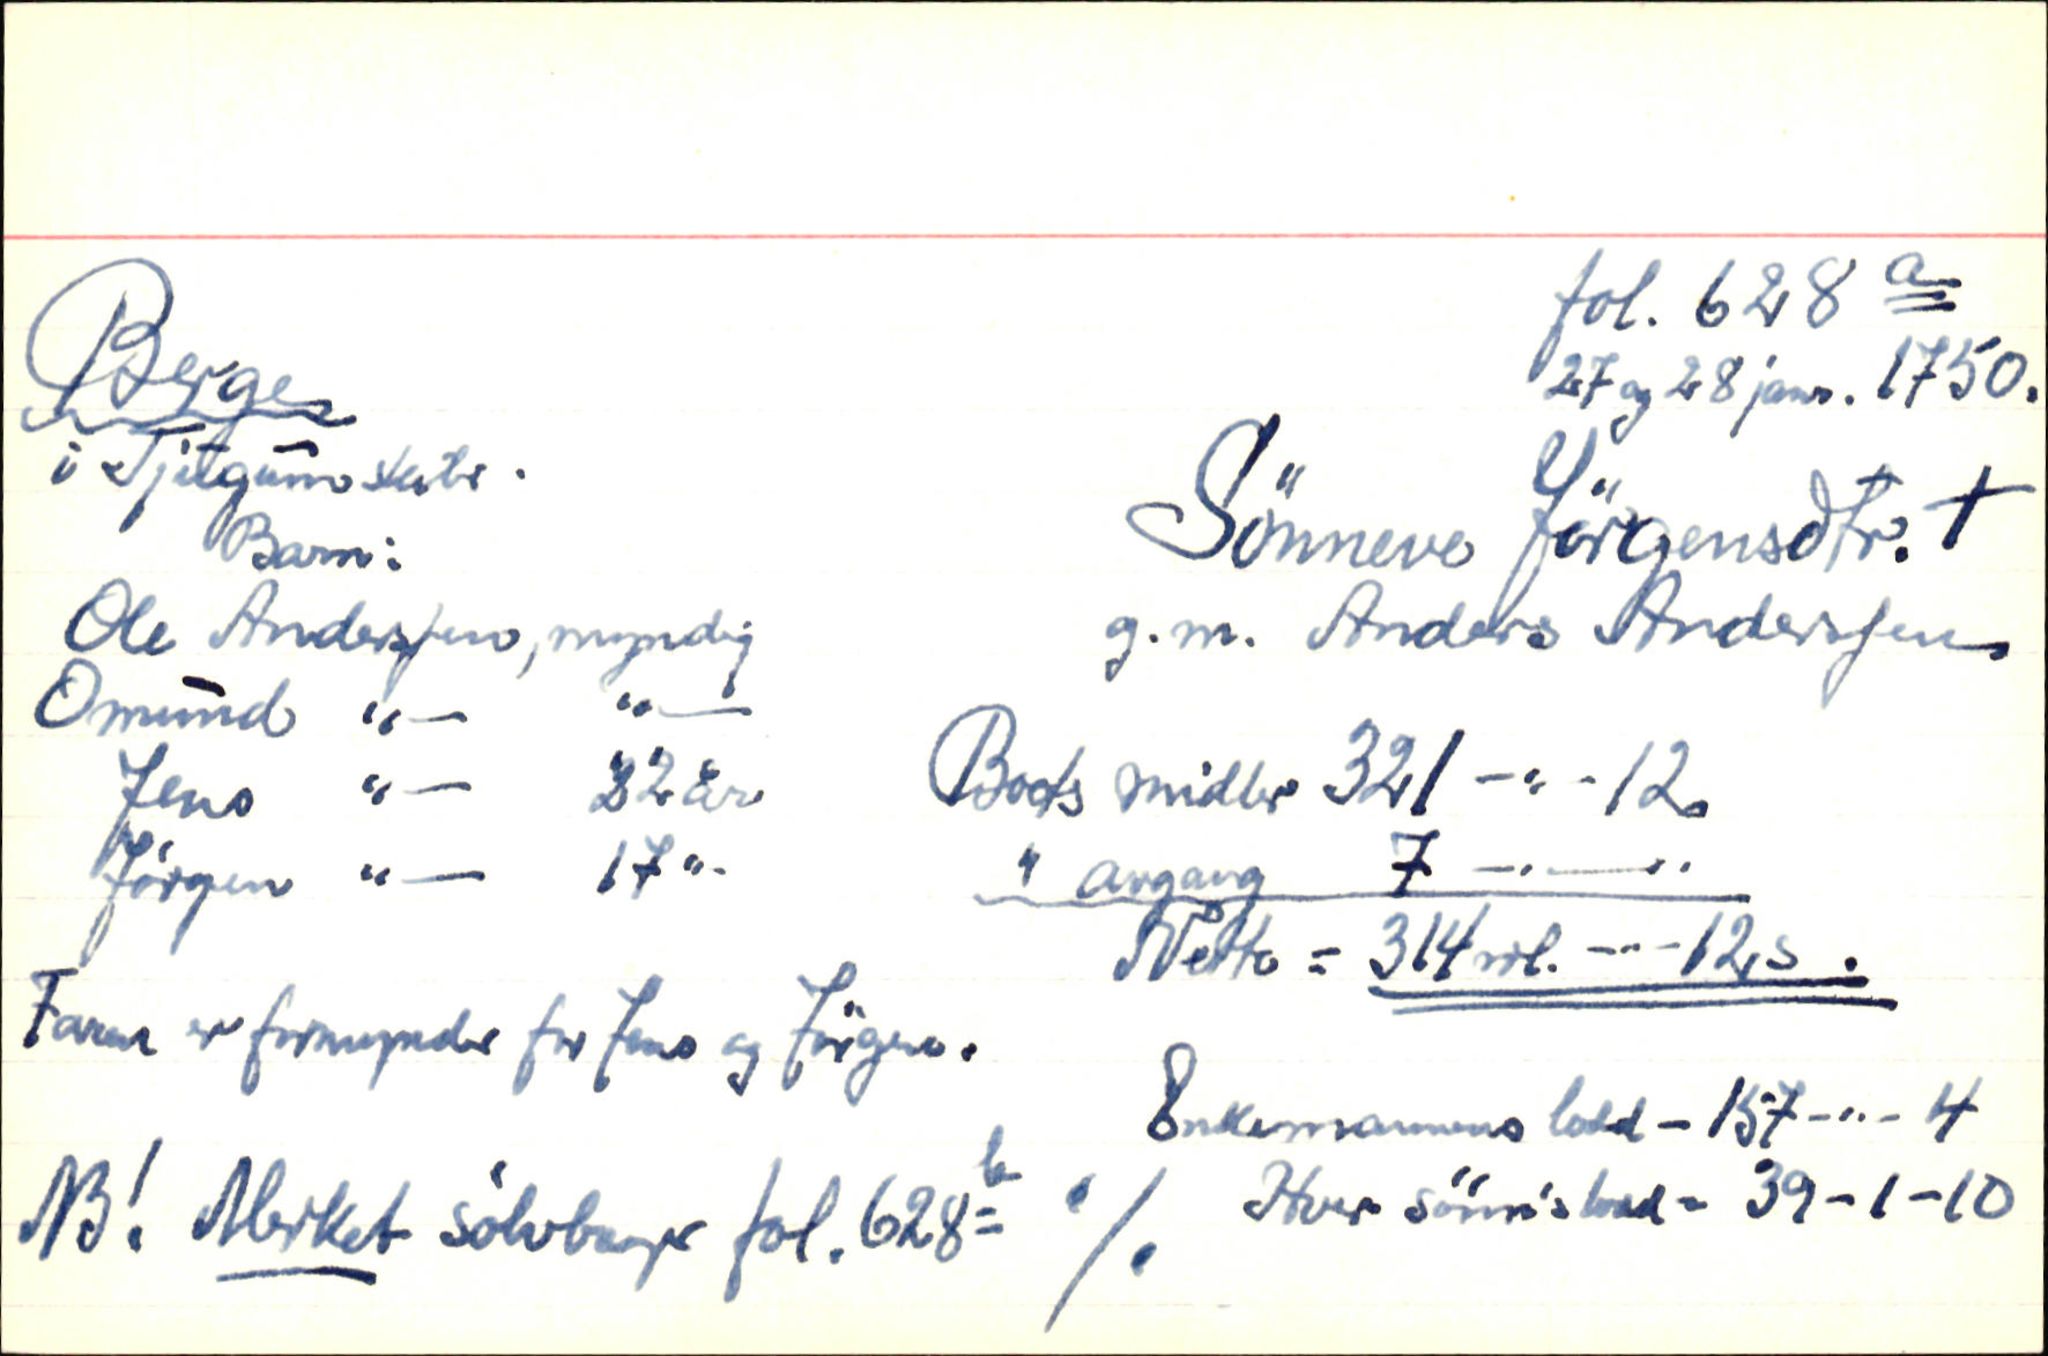 fol. 628 a
27 og 28 janr. 1750.
Berge
i Tjugum skibr.
Sönneve Jörgensdtr. †
Barn:
g. m. Anders Anderssen
Ole Anderssen, myndig
Omund "— "—
Jens "— 22 år
Jörgen "— 17 "-
Boets midler 321 -"- 12
" avgang 7 -"-"
Netto = 314 rdl. -"- 12 s.
Faren er formynder for Jens og Jörgen.
Enkemannens lodd - 157 -"- 4
Hver sönns lodd - 39 - 1 - 10
NB! Merket sölvbeger fol. 628 b ·/.